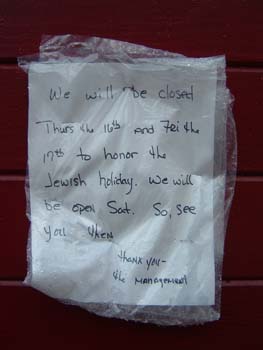 We will be closed
Thurs the 16th and Fri the
17th to honor the
Jewish holiday. We will
be open Sat. So, see
you then
thank you-
the management